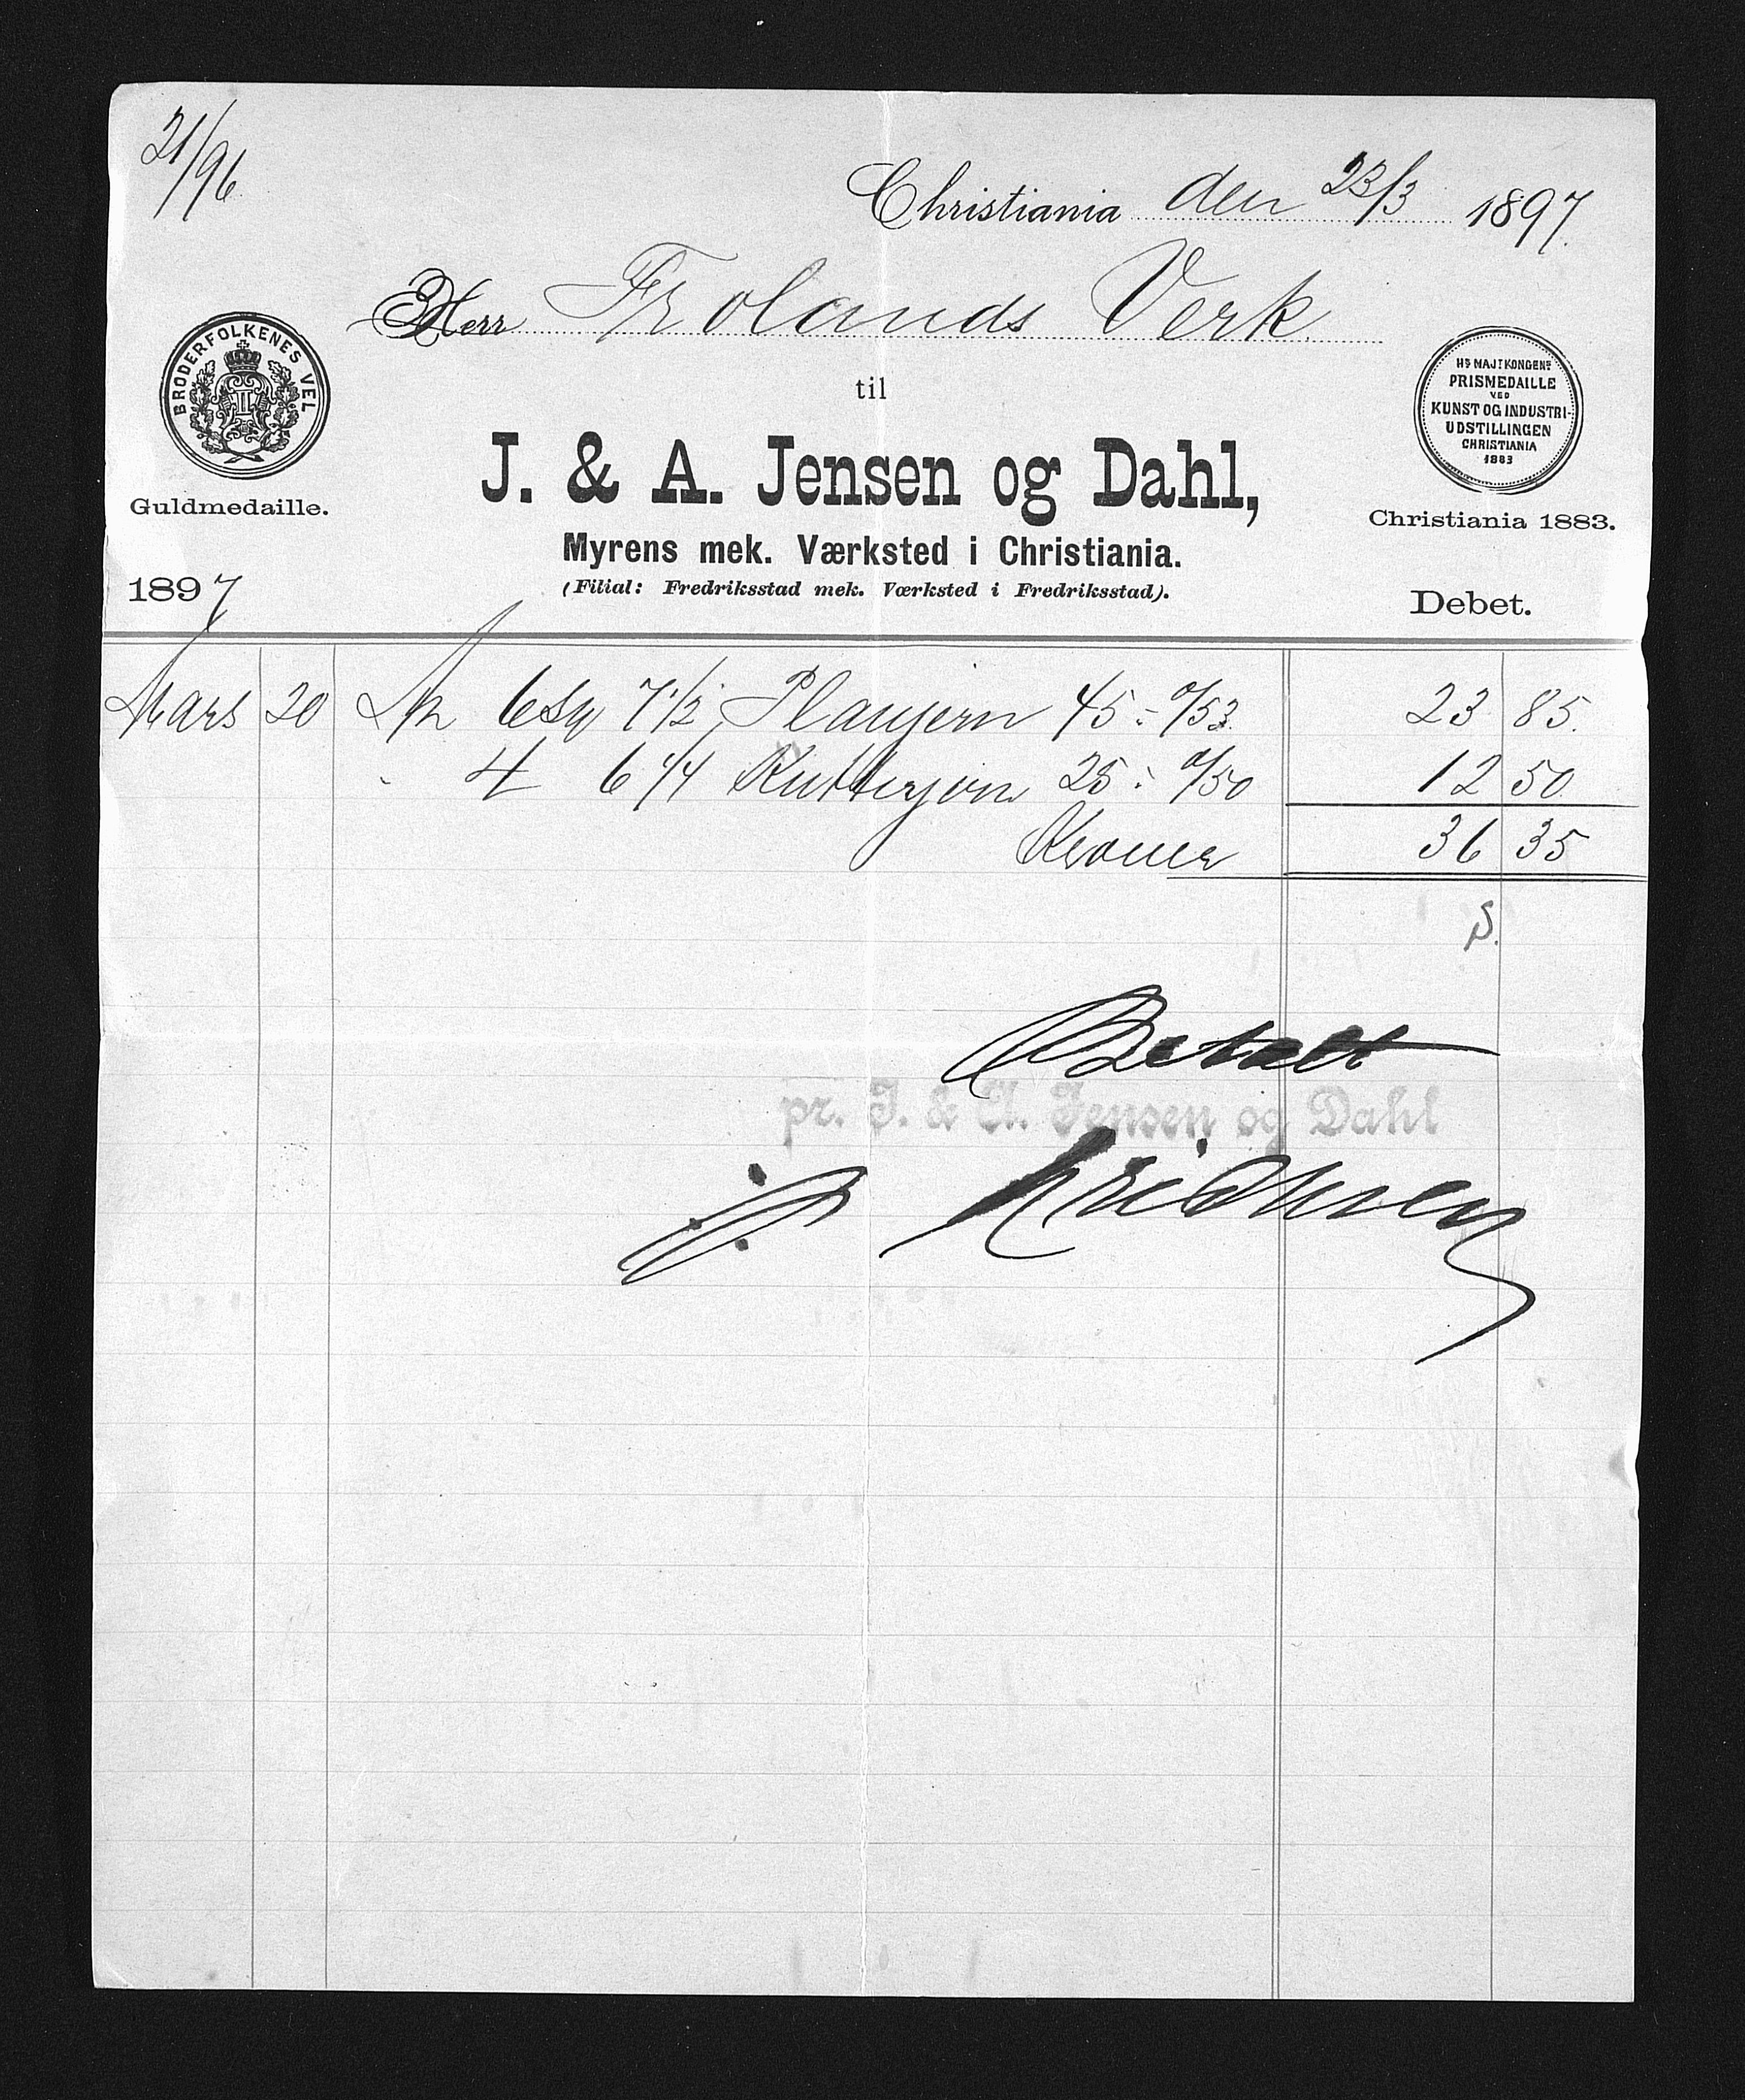 21/96
Christiania den 23/3 1897
Herr Frolands Verk
til
BRODERFOLKENES VEL
Hs MAJt KONGENs
PRISMEDAILLE
VED
KUNST OG INDUSTRI-
UDSTILLINGEN
CHRISTIANIA
1883
J. & A. Jensen og Dahl,
Guldmedaille.
Christiania 1883.
Myrens mek. Værksted i Christiania.
(Filial: Fredriksstad mek. Værksted i Fredriksstad).
1897
Debet.
Mars 20 An 6 7 1/2 45 53 23 85.
4 6 1/4 Kutterjern 25 50 12 50
Kroner 36 35
S.
Betalt
pr. J. & A. Jensen og Dahl